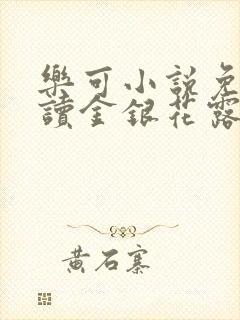 樂可小說免
讀金銀花露
黃石寨